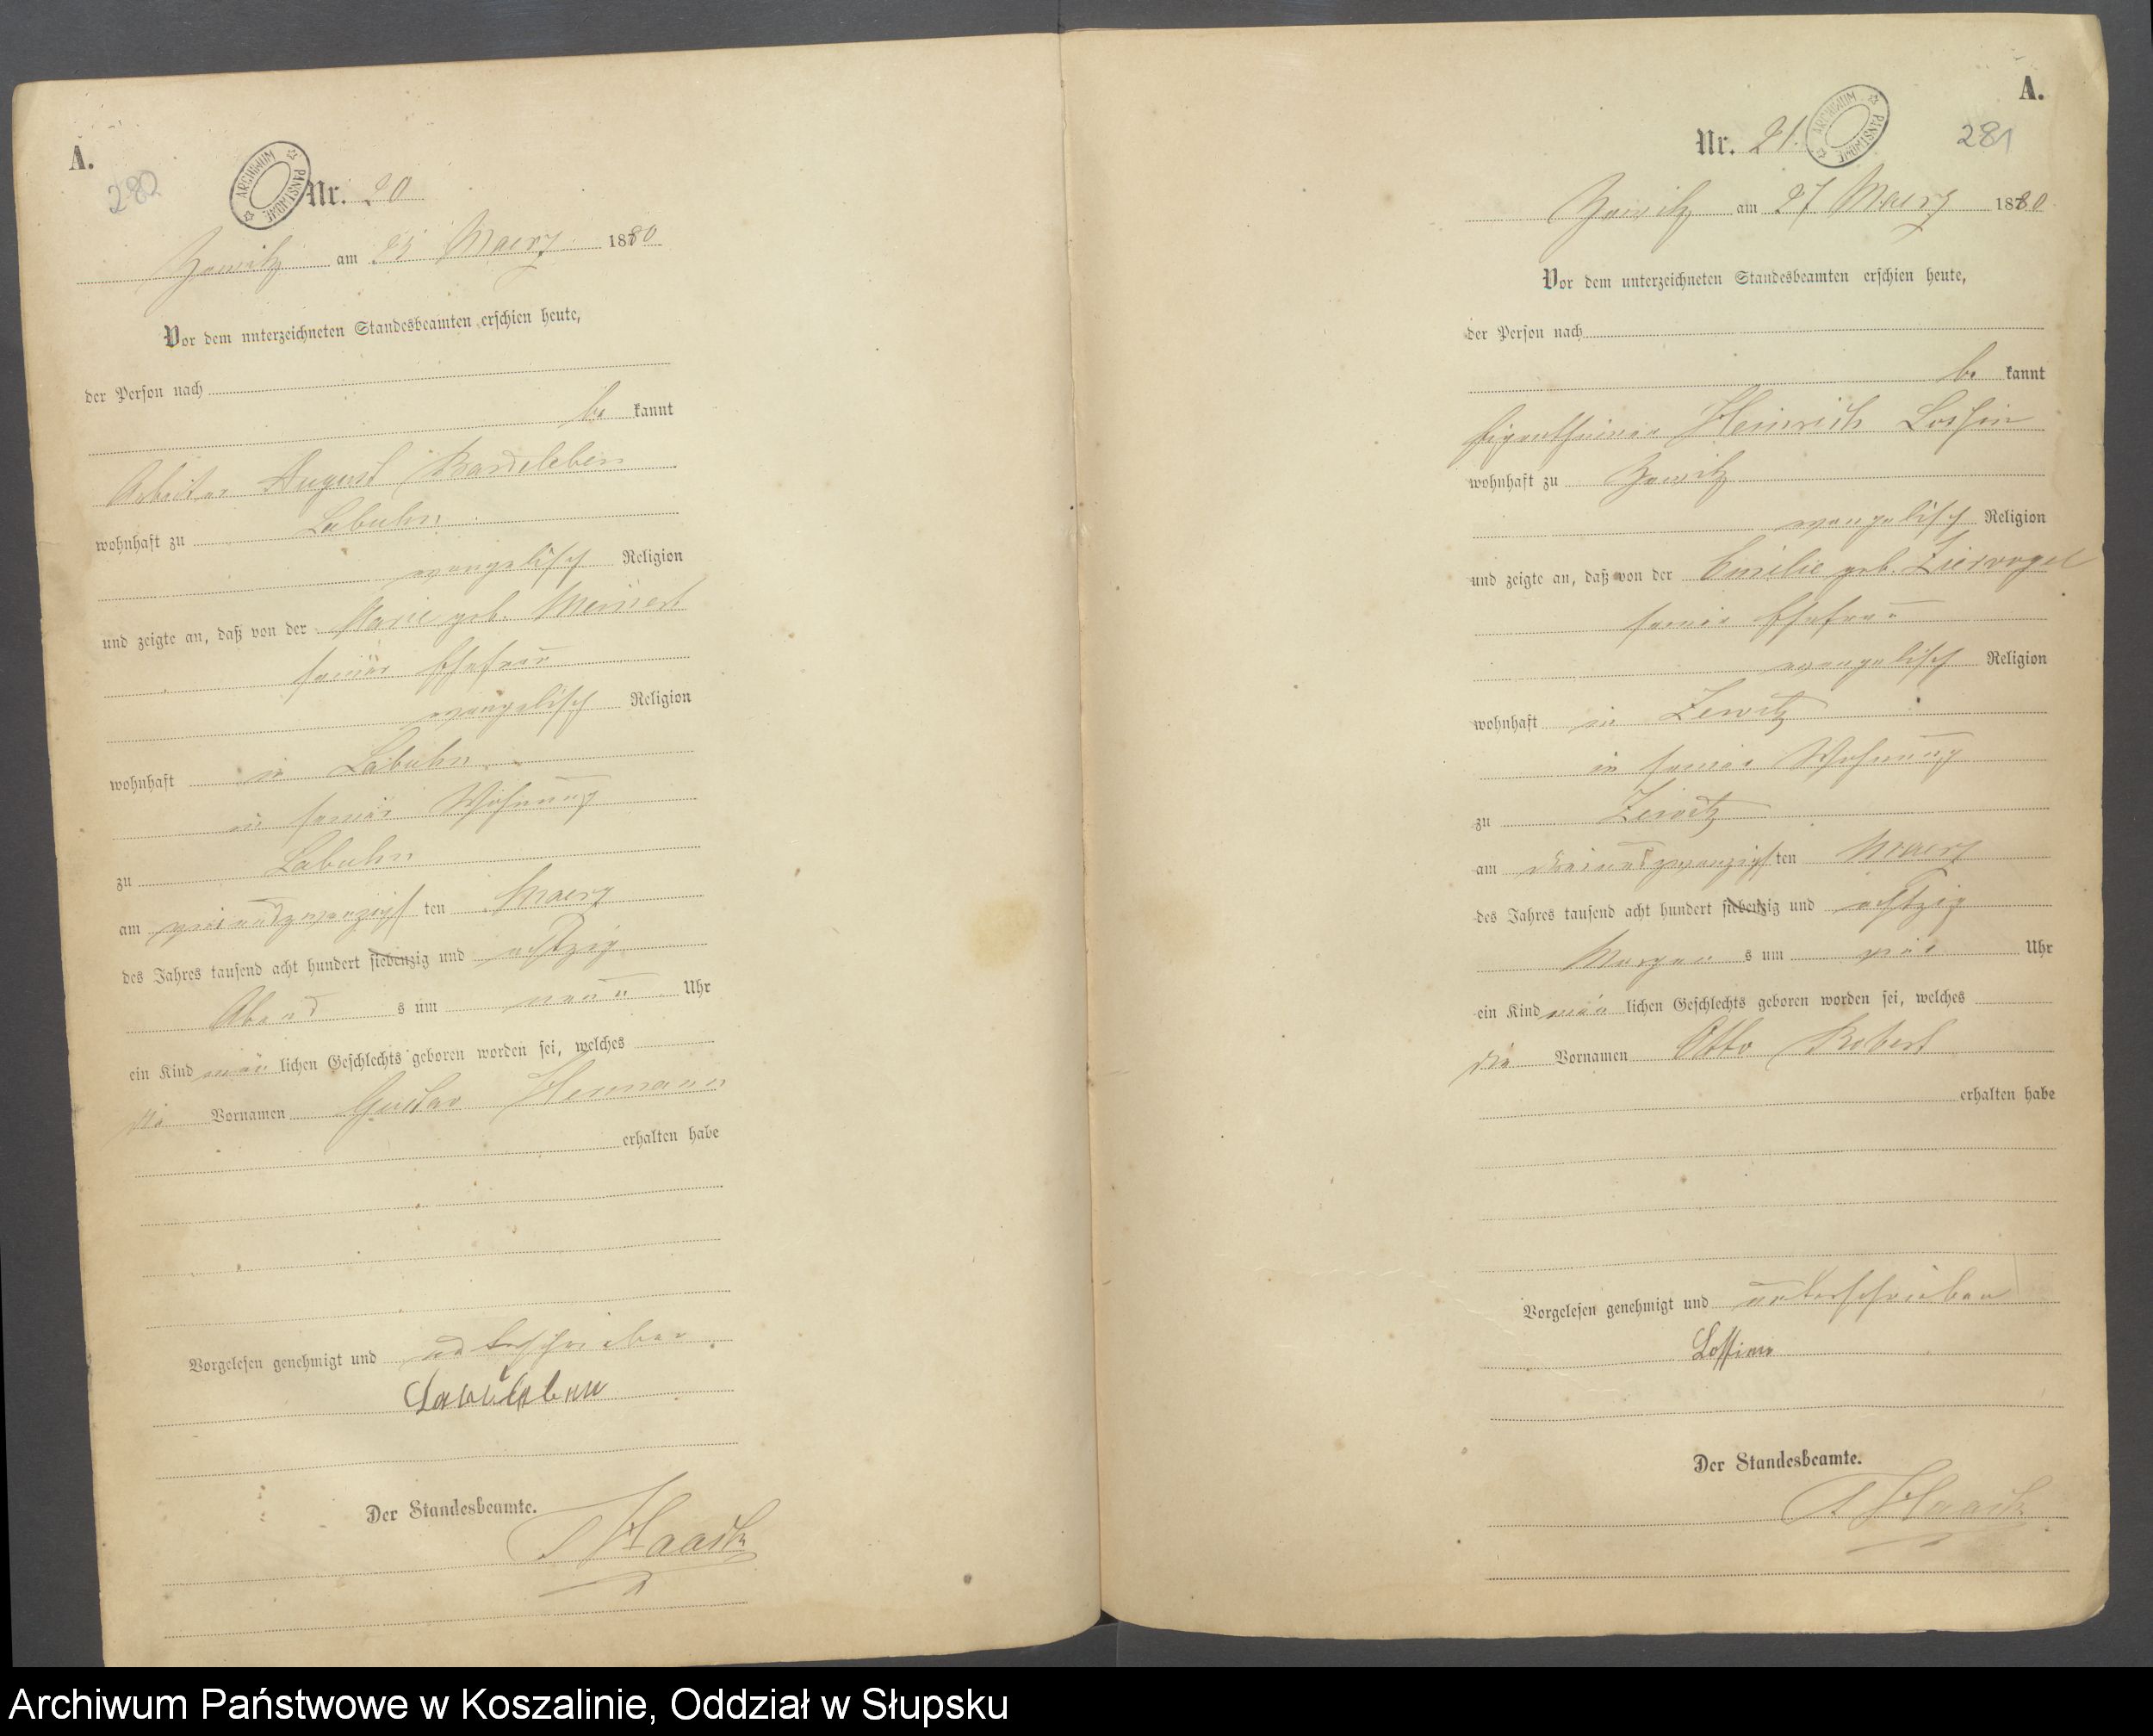 A.
282
ARCHIWUM PAŃSTWOWE
Nr. 20
Zewitz am 25 Maerz 1880
Vor dem unterzeichneten Standesbeamten erschien heute,
der Person nach
be kannt
Arbeiter August Bardeleben
wohnhaft zu Labuhn
evangelisch Religion
und zeigte an, daß von der Marie geb. Meinert
seiner Ehefrau
evangelisch Religion
wohnhaft in Labuhn
in seiner Wohnung
zu Labuhn
am ten Maerz
des Jahres tausend acht hundert siebenzig und achtzig
Abend s um neun Uhr
ein Kind män lichen Geschlechts geboren worden sei, welches
die Vornamen Gustav Hermann
erhalten habe
Vorgelesen genehmigt und unterschrieben
Bardeleben
Der Standesbeamte.
Haack
A.
281
ARCHIWUM PAŃSTWOWE
Nr. 21.
Zewitz am 27 Maerz 1880
Vor dem unterzeichneten Standesbeamten erschien heute,
der Person nach
be kannt
Eigenthümer Heinrich Lossin
wohnhaft zu Zewitz
evangelisch Religion
und zeigte an, daß von der Emilie geb. Ziervogel
seiner Ehefrau
evangelisch Religion
wohnhaft in Zewitz
in seiner Wohnung
zu Zewitz
am dreiundzwanzigsten Maerz
des Jahres tausend acht hundert siebenzig und achtzig
Morgen s um Uhr
ein Kind män lichen Geschlechts geboren worden sei, welches
die Vornamen Otto Robert
erhalten habe
Vorgelesen genehmigt und unterschrieben
Lossin
Der Standesbeamte.
Haack
Archiwum Państwowe w Koszalinie, Oddział w Słupsku